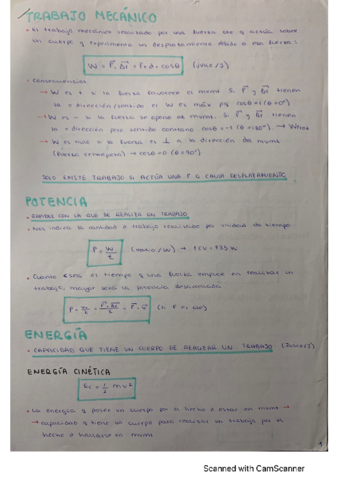 TRABAJO MECÁNICO
• El trabajo mecánico realizado por una fuerza cte q actúa sobre
un cuerpo y experimenta un desplazamiento debido a esa fuerza:
W = F · Δr = F · d · cosθ (Julio/J)
• Consecuencias:
- W es + si la fuerza favorece el movim. Si F y Δr tienen
la = dirección/sentido el W es máx pq cosθ = 1 (θ = 0°)
- W es - si la fuerza se opone al movim. Si F y Δr tienen
la = dirección pero sentido contrario cosθ = -1 (θ = 180°) →
- W es nulo si la fuerza es ⊥ a la dirección del movim
(fuerza centrípeta) → cosθ = 0 (θ = 90°)
SOLO EXISTE TRABAJO SI ACTÚA UNA F Q CAUSA DESPLAZAMIENTO
POTENCIA
• RAPIDEZ CON LA QUE SE REALIZA UN TRABAJO
• Nos indica la cantidad d trabajo realizado por unidad de tiempo
P = W/t (Watio/W) → 1CV = 735 W
• Cuanto < sea el tiempo q una fuerza emplee en realizar un
trabajo, mayor será la potencia desarrollada
ENERGÍA
• CAPACIDAD QUE TIENE UN CUERPO DE REALIZAR UN TRABAJO (Julio/J)
ENERGÍA CINÉTICA
Ec = 1/2 mv²
• La energía q posee un cuerpo por el hecho d estar en movim →
→ capacidad q tiene un cuerpo para realizar un trabajo por el
hecho d hallarse en movim
Scanned with CamScanner